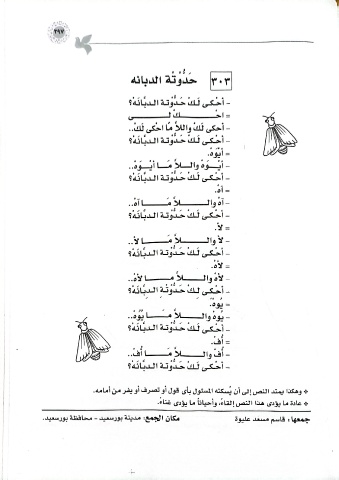 ٢٩٧
٣٠٣ حَدُّوتَة الدبانه
- أحْكى لَكْ حَدُّوتَة الدبَّانَه؟
= احْـــكْ لــــى
- أحْكى لَكْ واللاَّ مَا احْكى لَكْ..
أحْكى لَكْ حَدُّوتَة الدبَّانَه؟
= أيْوَهْ.
- أيْـوَهْ واللاَّ مَـا أيْـوَهْ..
أحْكى لَكْ حَدُّوتَة الدبَّانَه؟
= آهْ.
- آهْ واللاَّ مَـا آهْ..
أحْكى لَكْ حَدُّوتَة الدبَّانَه؟
= لأ.
- لأ واللاَّ مَـا لأ..
أحْكى لَكْ حَدُّوتَة الدبَّانَه؟
= لأهْ.
- لأهْ واللاَّ مَـا لأهْ..
أحْكى لَكْ حَدُّوتَة الدبَّانَه؟
= يُوهْ.
- يُوهْ واللاَّ مَـا يُوهْ..
أحْكى لَكْ حَدُّوتَة الدبَّانَه؟
= أُفْ.
- أُفْ واللاَّ مَـا أُفْ..
أحْكى لَكْ حَدُّوتَة الدبَّانَه؟
* وهكذا يمتد النص إلى أن يُسكته المسئول بأى قول أو تصرف أو يفر من أمامه.
* عادة ما يؤدى هذا النص إلقاءً، وأحياناً ما يؤدى غناءً.
جمعها: قاسم مسعد عليوة مكان الجمع: مدينة بورسعيد - محافظة بورسعيد.